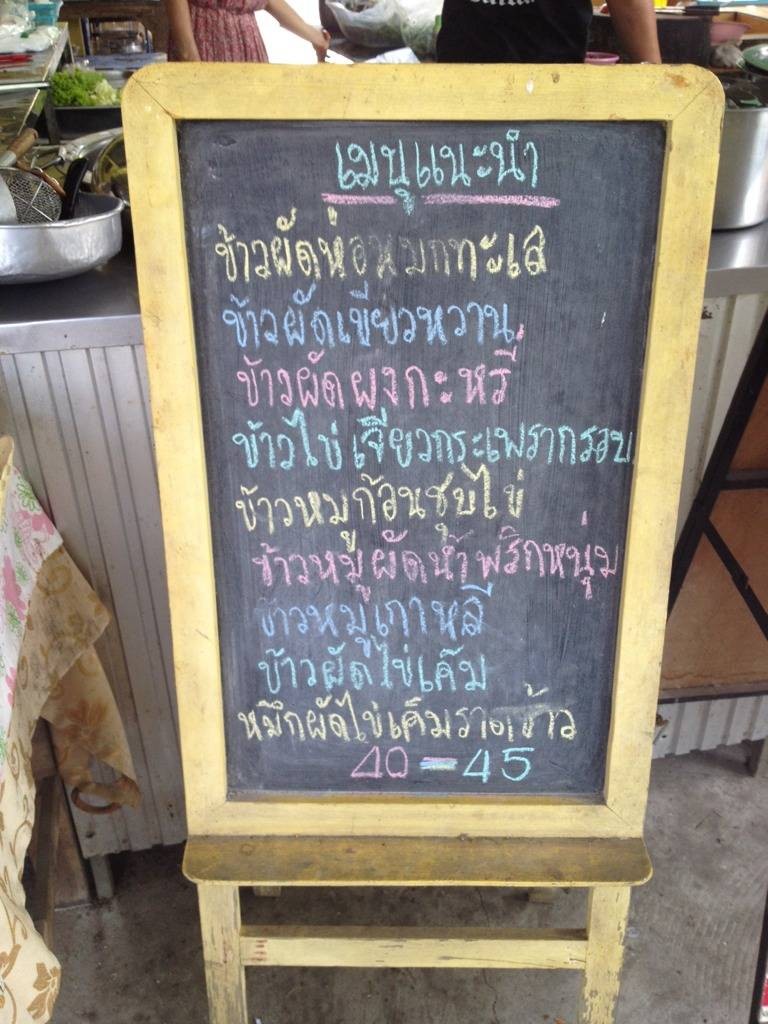 เมนูแนะนำ
ข้าวผัดห่อหมกทะเล
ข้าวผัดเขียวหวาน
ข้าวผัดผงกะหรี่
ข้าวไข่เจียวกระเพรากรอบ
ข้าวหมูก้อนชุบไข่
ข้าวหมูผัดน้ำพริกหนุ่ม
ข้าวหมูเกาหลี
ข้าวผัดไข่เค็ม
หมึกผัดไข่เค็มราดข้าว
40 = 45